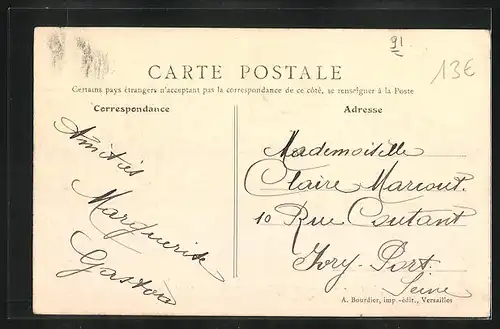 91
13€
CARTE POSTALE
Certains pays étrangers n'acceptant pas la correspondance de ce côté, se renseigner à la Poste
Correspondance
Amitiés
Marguerite
Gaston
Adresse
Mademoiselle
Claire Marcout.
10 Rue Coutant
Ivry-Port
Seine
A. Bourdier, imp.-édit., Versailles